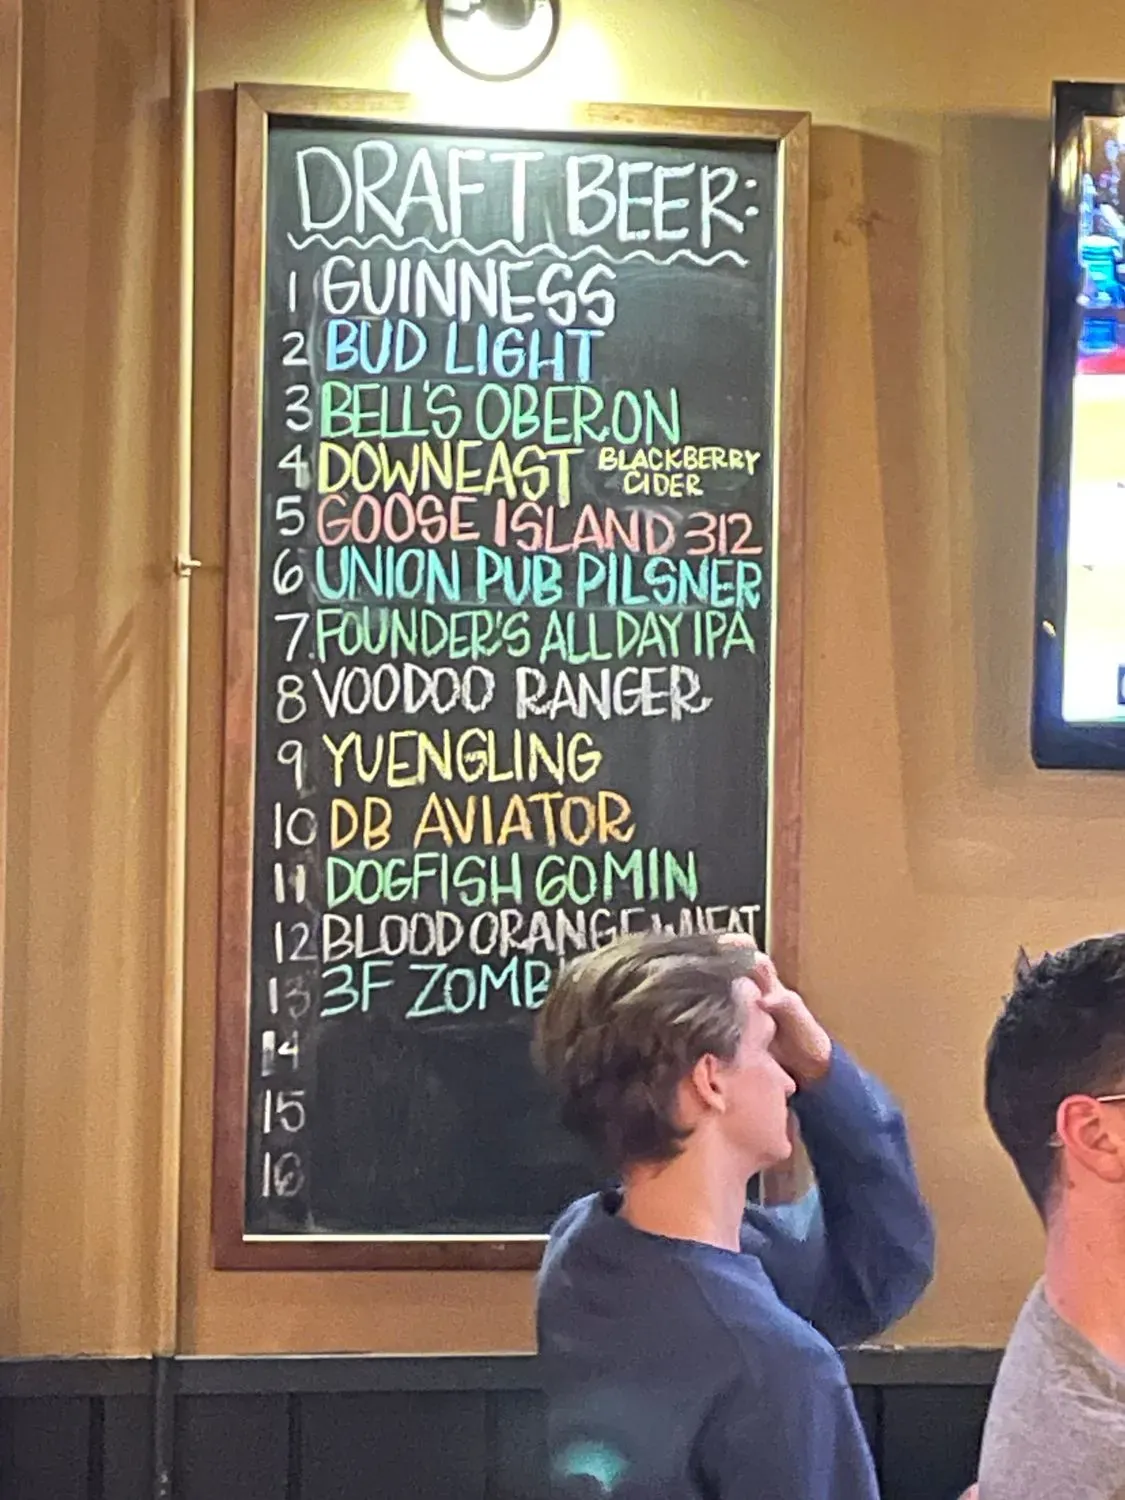 DRAFT BEER:
1 GUINNESS
2 BUD LIGHT
3 BELL'S OBERON
4 DOWNEAST BLACKBERRY CIDER
5 GOOSE ISLAND 312
6 UNION PUB PILSNER
7. FOUNDER'S ALL DAY IPA
8 VOODOO RANGER
9 YUENGLING
10 DB AVIATOR
11 DOGFISH 60 MIN
12 BLOOD ORANGE WHEAT
13 3F
14
15
16